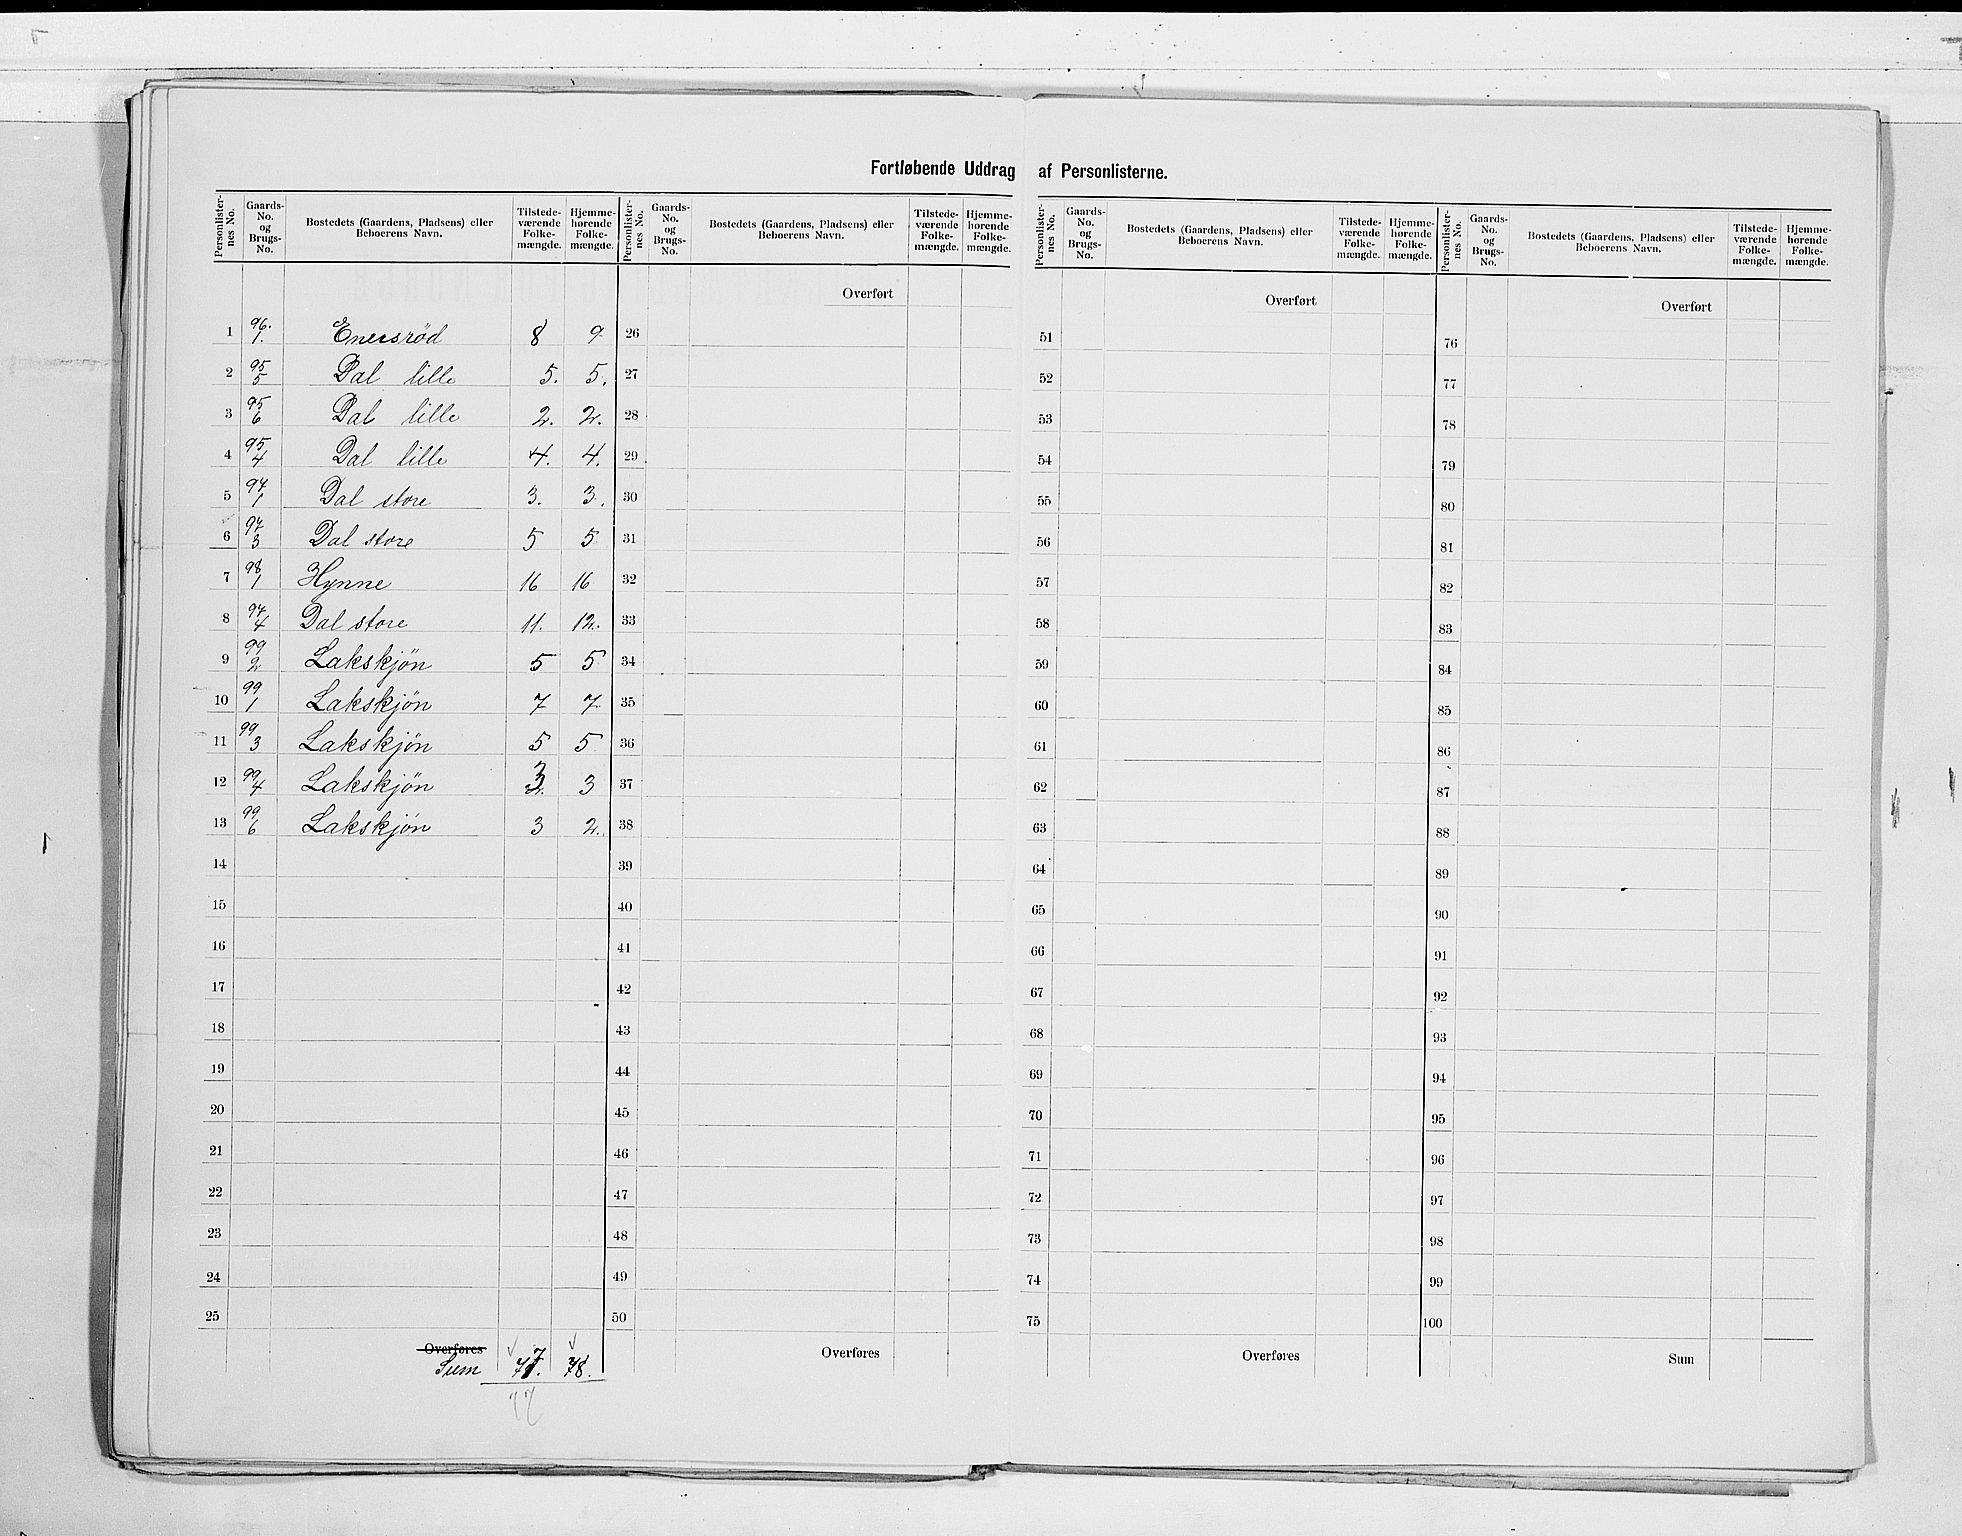 Fortløbende Uddrag af Personlisterne.
Personlister-nes No. | Gaards-No. og Brugs-No. | Bostedets (Gaardens, Pladsens) eller Beboerens Navn. | Tilstede-værende Folke-mængde. | Hjemme-hørende Folke-mængde.
1 | 96. 1. | Enersrød | 8 | 9
2 | 95 5 | Dal lille | 5. | 5.
3 | 95 6 | Dal lille | 2. | 2.
4 | 95 4 | Dal lille | 4. | 4.
5 | 97 1 | Dal store | 3. | 3.
6 | 97 3 | Dal store | 5 | 5
7 | 98 1 | Hynne | 16 | 16
8 | 97 4 | Dal store | 11. | 12.
9 | 99 2 | Lakskjøn | 5 | 5
10 | 99 1 | Lakskjøn | 7 | 7
11 | 99 3 | Lakskjøn | 5 | 5
12 | 99 4 | Lakskjøn | 3 | 3
13 | 99 6 | Lakskjøn | 3 | 2.
14
15
16
17
18
19
20
21
22
23
24
25
Overføres
Sum 77. 78.
77
Personlister-nes No. | Gaards-No. og Brugs-No. | Bostedets (Gaardens, Pladsens) eller Beboerens Navn. | Tilstede-værende Folke-mængde. | Hjemme-hørende Folke-mængde.
Overført
26
27
28
29
30
31
32
33
34
35
36
37
38
39
40
41
42
43
44
45
46
47
48
49
50
Overføres
Personlister-nes No. | Gaards-No. og Brugs-No. | Bostedets (Gaardens, Pladsens) eller Beboerens Navn. | Tilstede-værende Folke-mængde. | Hjemme-hørende Folke-mængde.
Overført
51
52
53
54
55
56
57
58
59
60
61
62
63
64
65
66
67
68
69
70
71
72
73
74
75
Overføres
Personlister-nes No. | Gaards-No. og Brugs-No. | Bostedets (Gaardens, Pladsens) eller Beboerens Navn. | Tilstede-værende Folke-mængde. | Hjemme-hørende Folke-mængde.
Overført
76
77
78
79
80
81
82
83
84
85
86
87
88
89
90
91
92
93
94
95
96
97
98
99
100
Sum